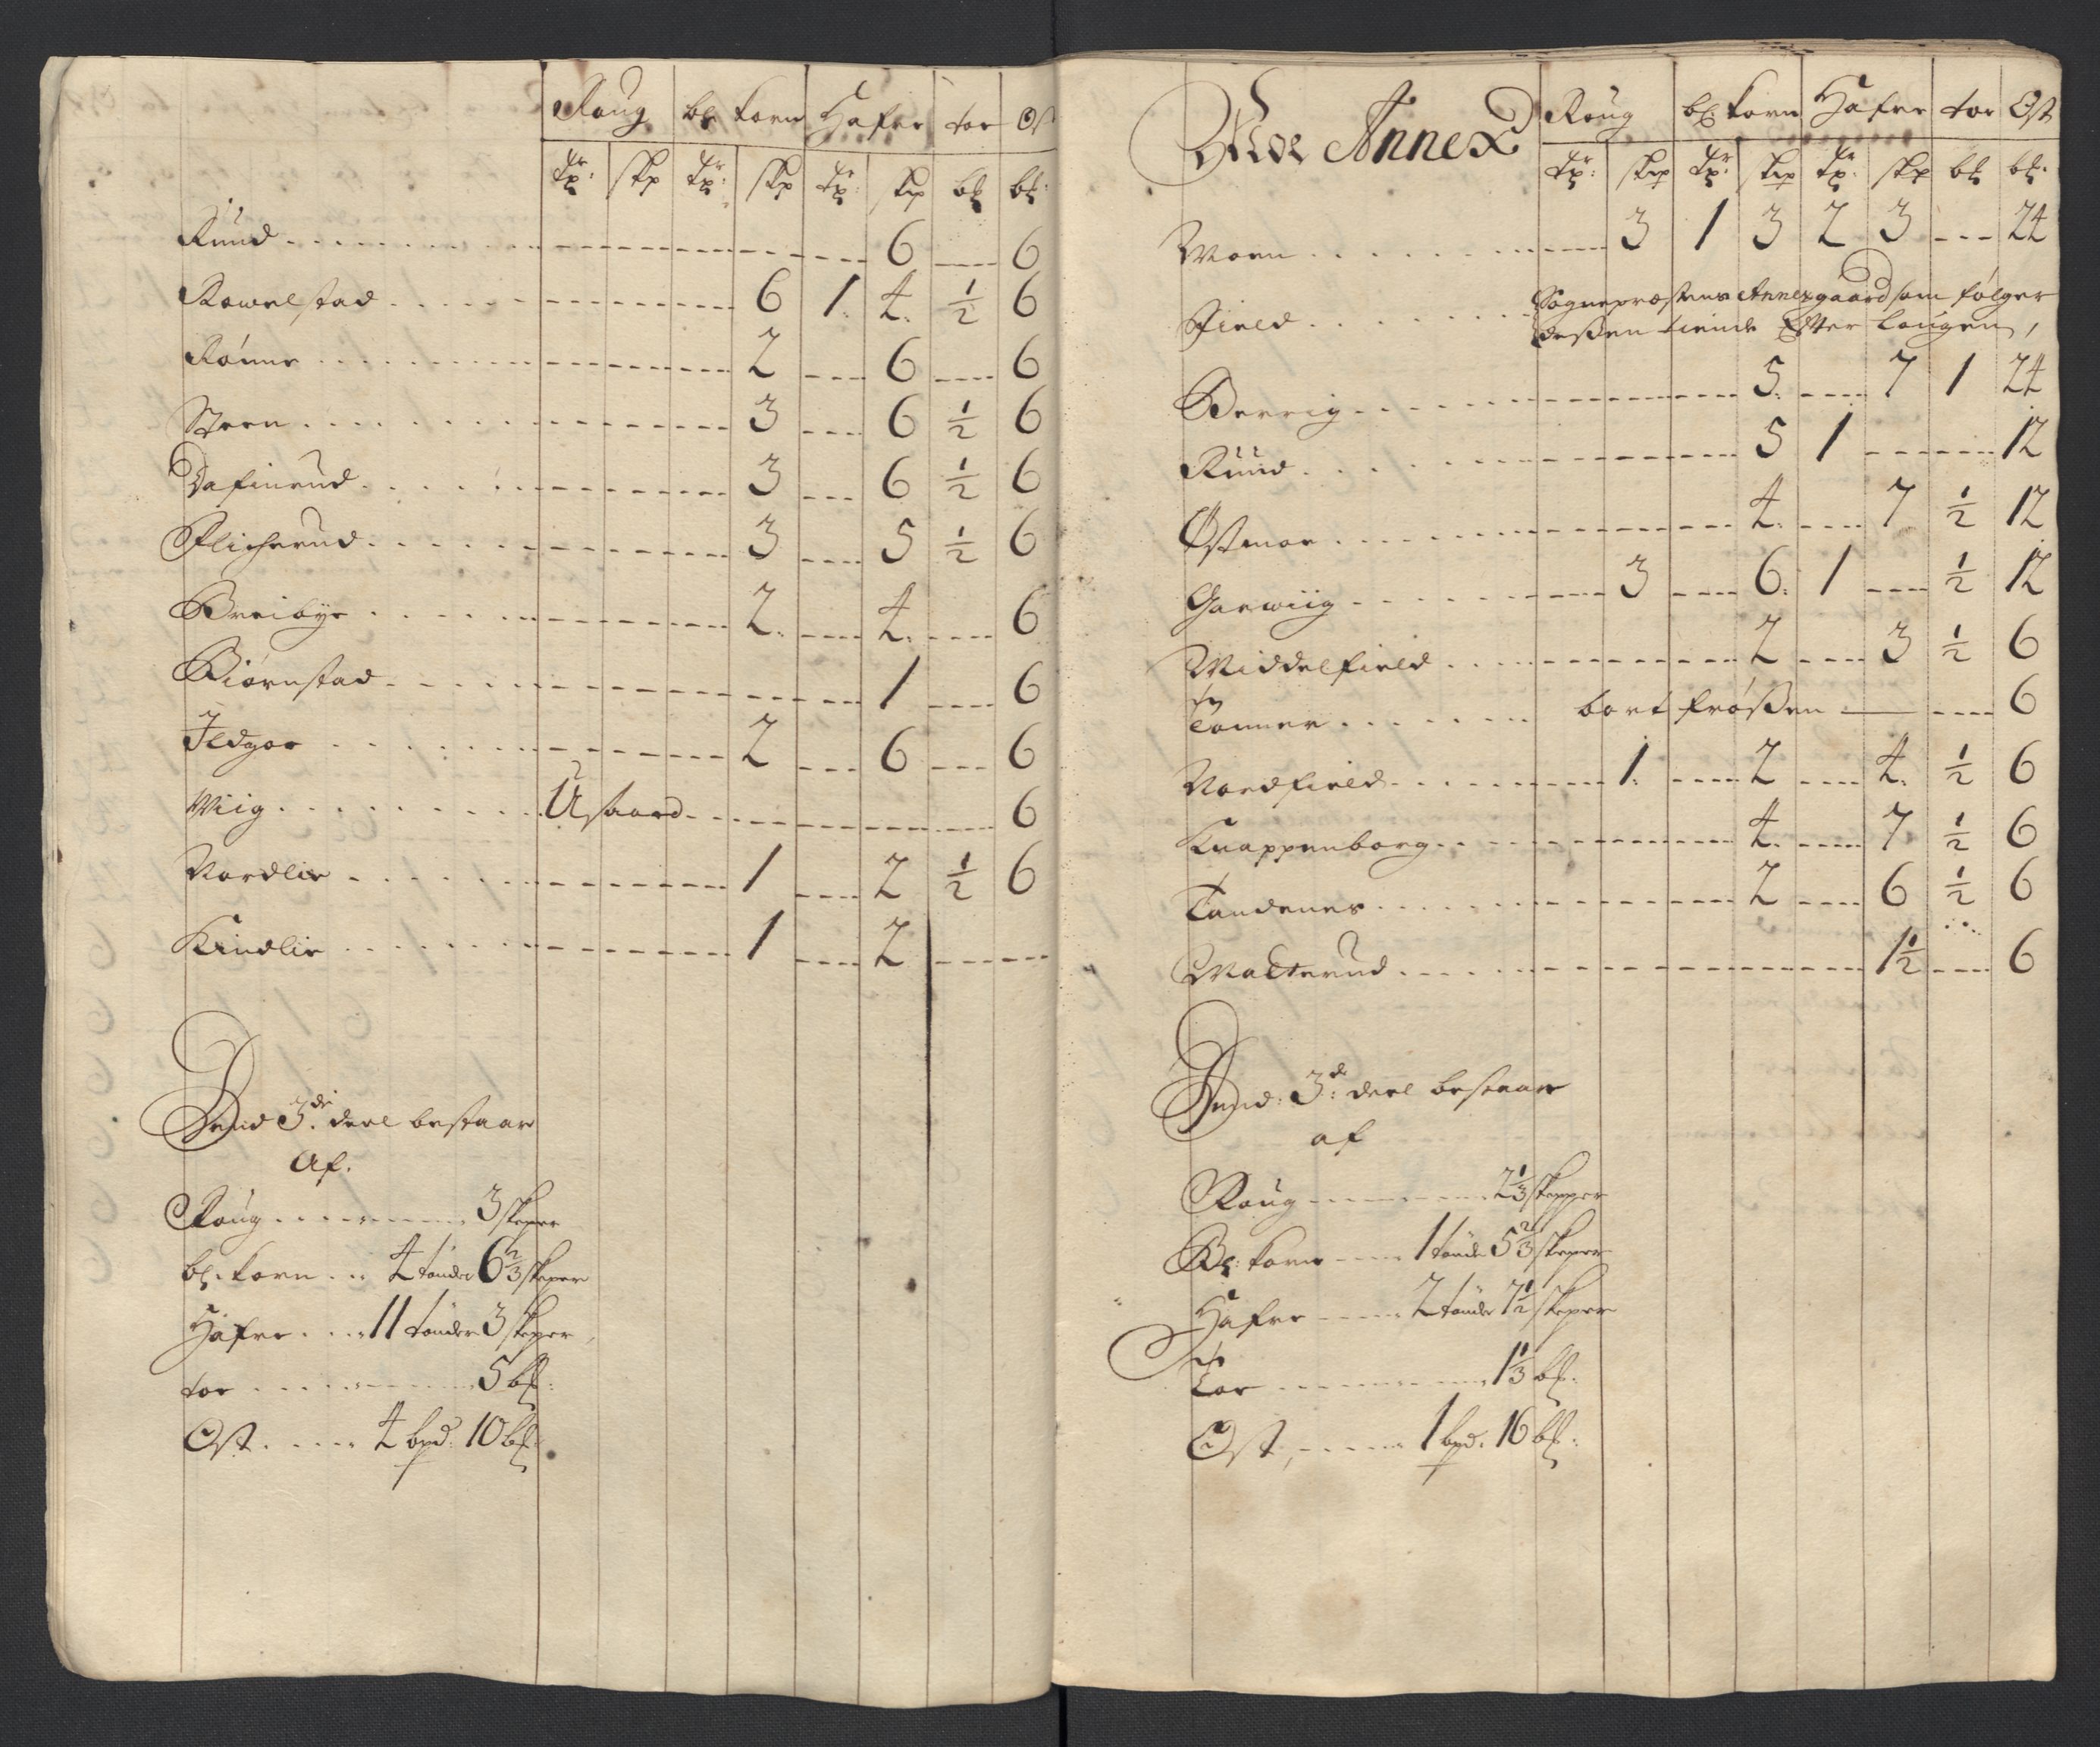 Roug bl korn Hafre tor Ost
tr: skp tr: skp tr: skp bl bl:
Ruud 6 6
Rowelstad 6 1. 4. ½ 6
Rönne 2 6 6
Steen 3 6 ½ 6
Dafinrud 3 6 ½ 6
Flicherud 3 5 ½ 6
Breibye 2. 4. 6
Biörnstad 1 6
Ildgor 2 6 6
Wiig Usaaed 6
Nordlie 1 2 ½ 6
Kindlie 1 2
Dend 3de. deel bestaar
Af.
Roug 3 skeper
bl. korn 4 tønder 6⅔ skeper
Hafre 11 tønder 3 skeper
tor 5 bl:
Ost 4 bpd: 10 bl:
Moe Annex Roug bl: korn Hafre tor Ost
tr: skp tr: skp tr: skp bl bl:
Moen 3 1 3 2 3 24
Field Sognepræstens Annexgaard som følger
deßen tiende Efter lougen,
Berrig 5. 7 1 24
Ruud 5 1 12
Østmoe 4. 7 ½ 12
Garwiig 3 6. 1 ½ 12
Middelfield 2 3 ½ 6
Tonner bort frößen 6
Nordfield 1. 2 4. ½ 6
Knappenborg 4. 7 ½ 6
Tandenes 2 6 ½ 6
Malterud 1½ 6
Dend: 3de: deel bestaar
af
Roug 2⅓ skepper
Bl: korn 1 tønde 5⅔ skeper
Hafre 2 tønder 7½ skeper
Tor 1⅓ bl:
Ost, 1 bpd. 16 bl: